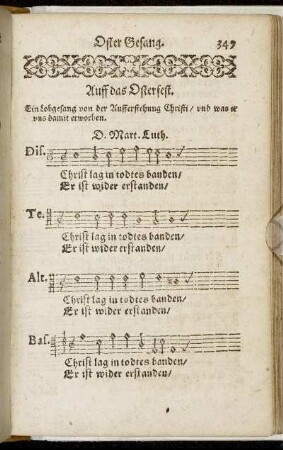 Oster Gesang. 345
Auff das Osterfest.
Ein Lobgesang von der Aufferstehung Christi/ vnd was er
vns damit erworben.
D. Mart. Luth.
Dis.
Christ lag in todtes banden/
Er ist wider erstanden/
Te.
Christ lag in todtes banden/
Er ist wider erstanden/
Alt.
Christ lag in todtes banden/
Er ist wider erstanden/
Bas.
Christ lag in todtes banden/
Er ist wider erstanden/